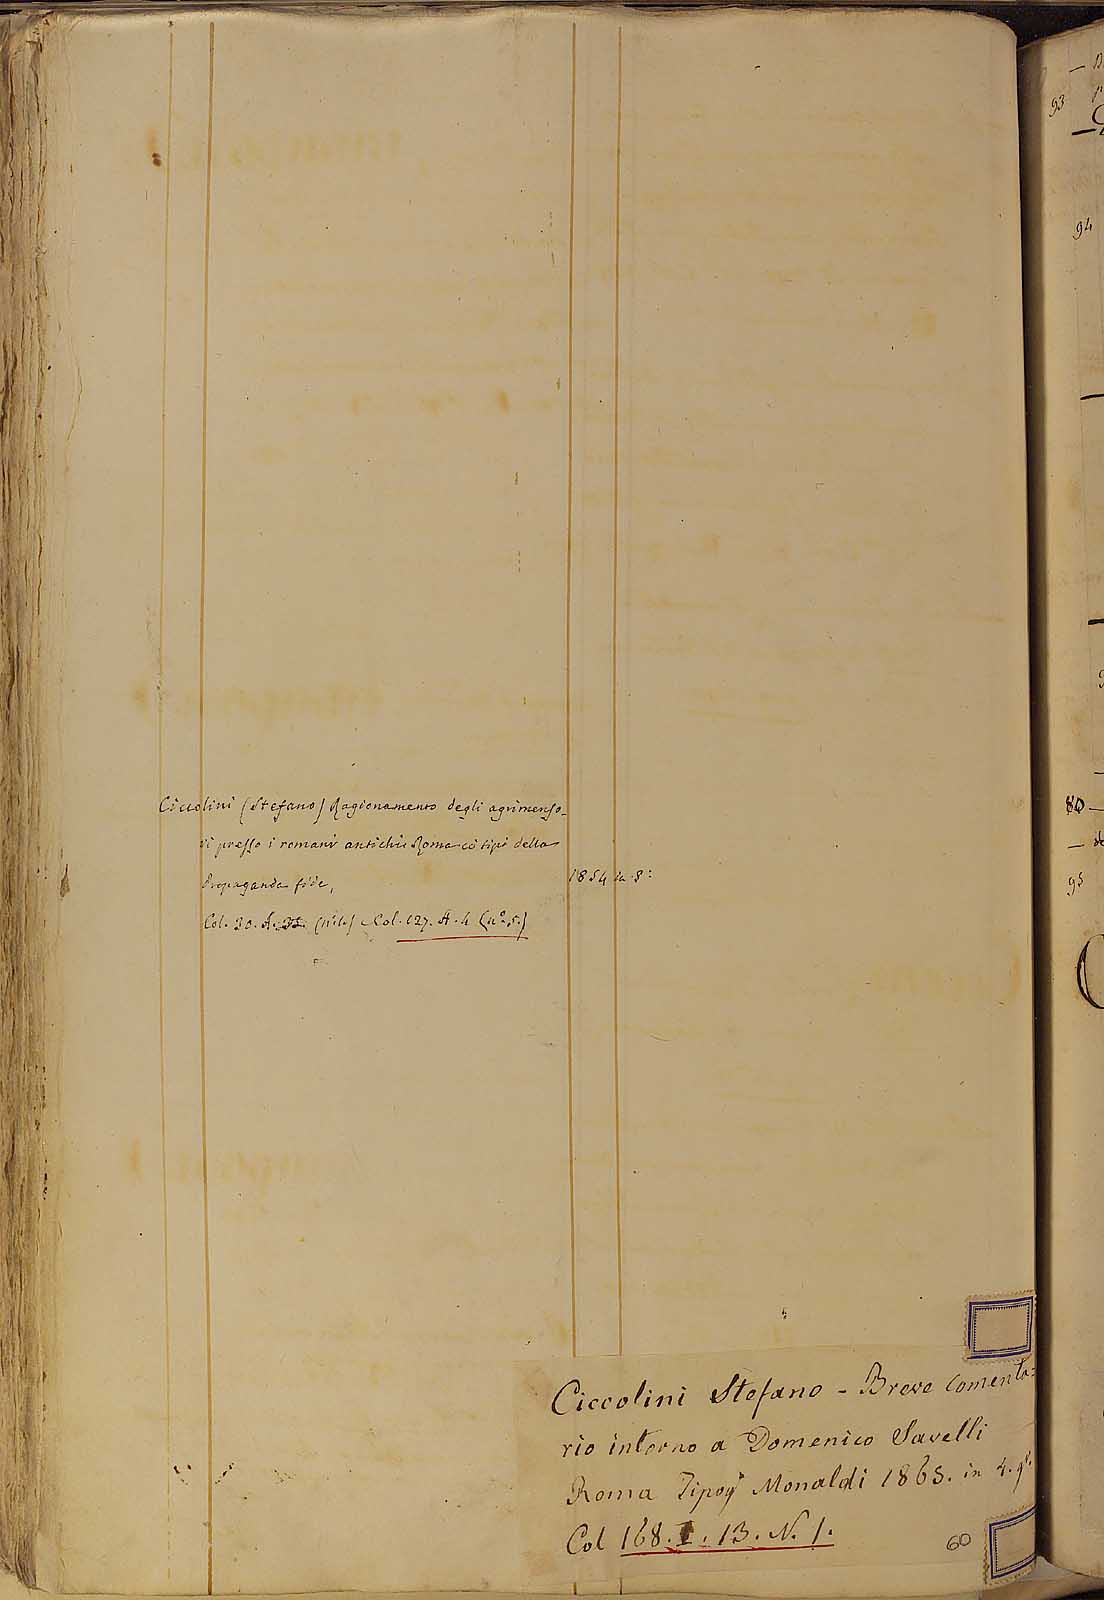 Ciccolini (Stefano) Ragionamento degli agrimenso-
ri presso i romani antichi: Roma co tipi della
Propaganda fide, 1854 in 8:
Col. 30. A. (n°1.) Col. 127. A. 4 (n°. 5.)
Ciccolini Stefano - Breve comenta=
rio intorno a Domenico Savelli
Roma Tipog^a Monaldi 1863. in 4. g^r.
Col 168. I. 13. N. 1.
60
93
94
80
95
C